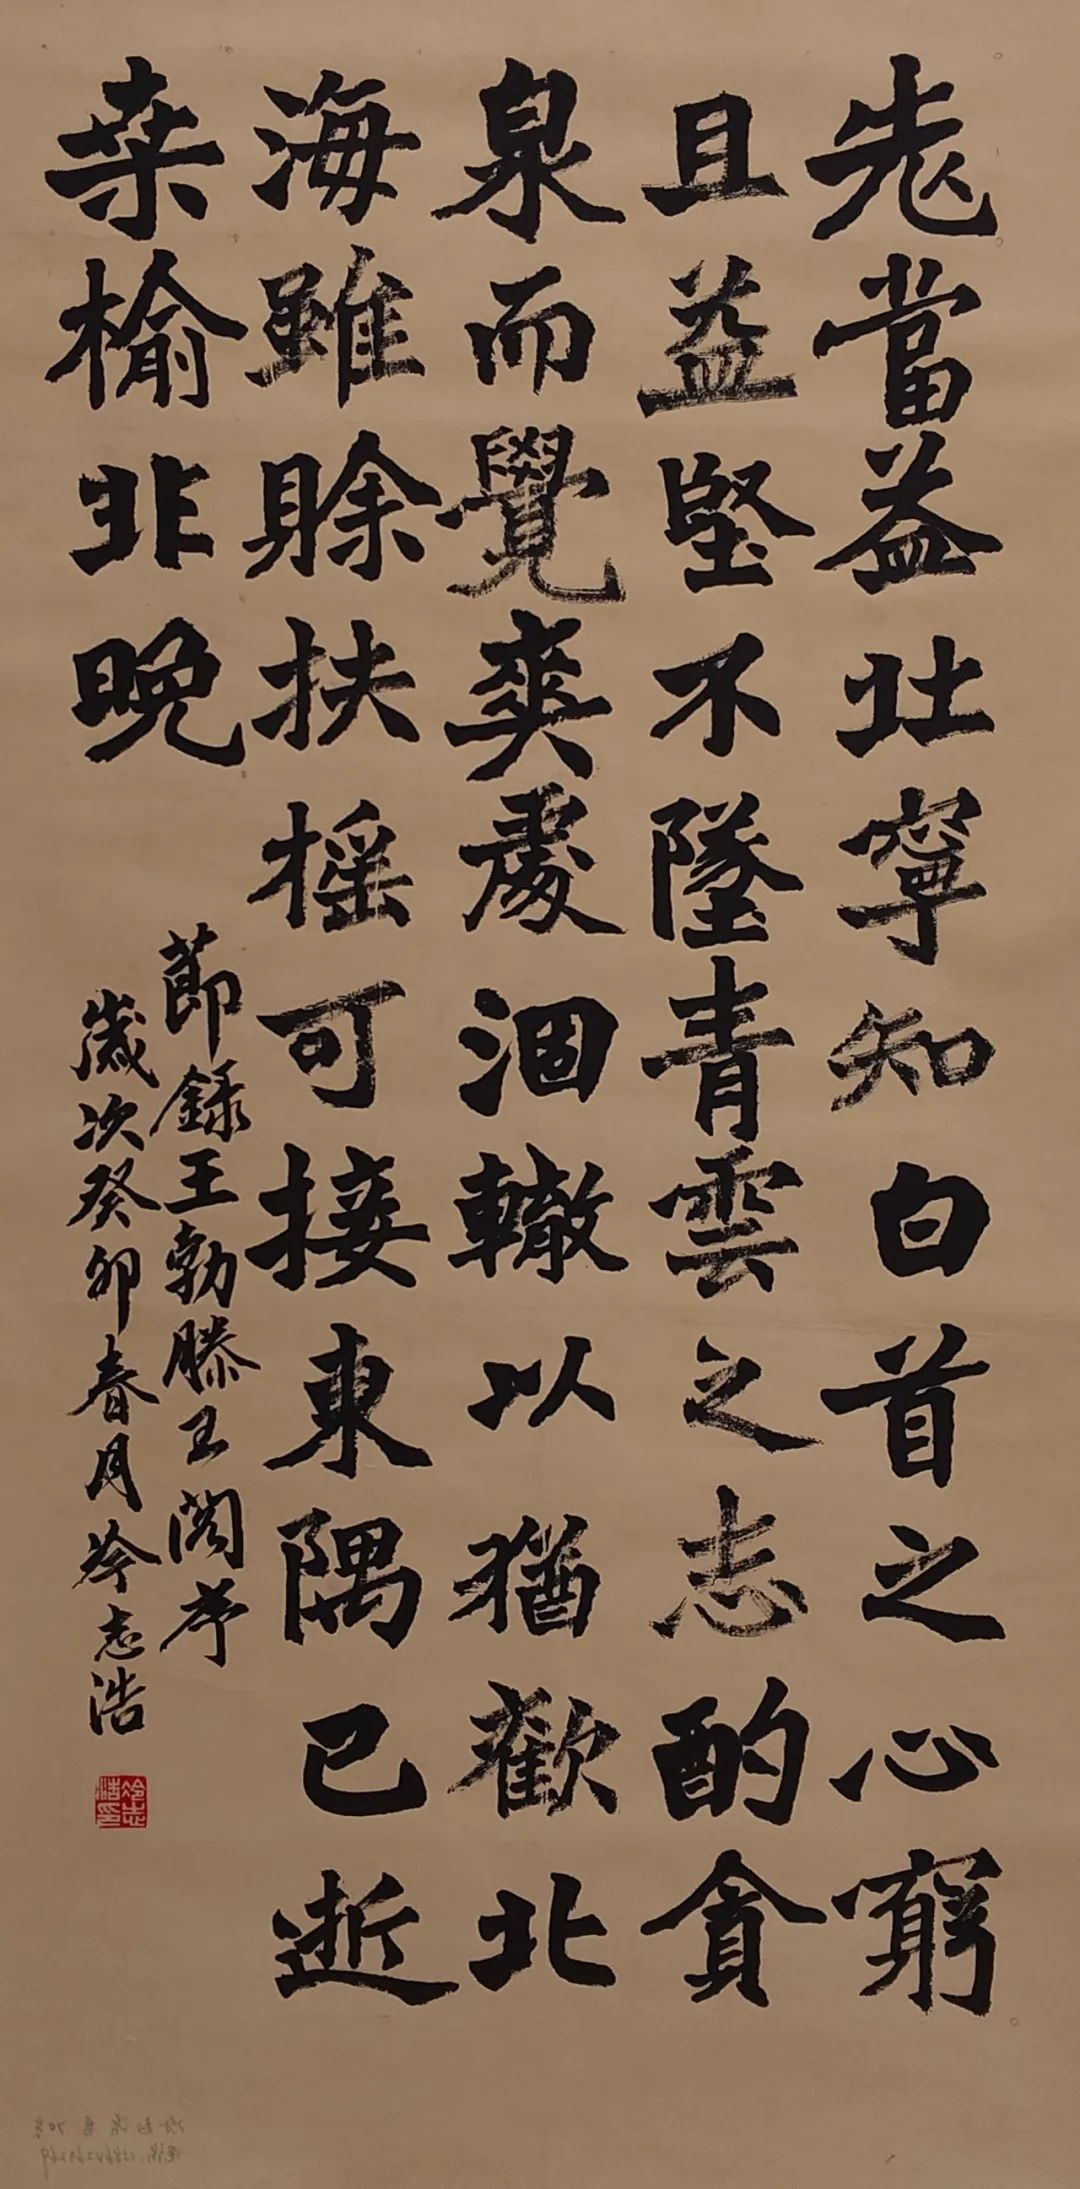 老當益壯寧知白首之心窮
且益堅不墜青雲之志酌貪
泉而覺爽處涸轍以猶歡北
海雖賒扶搖可接東隅已逝
桑榆非晚
節錄王勃滕王閣序
歲次癸卯春月冷志浩
冷志浩印